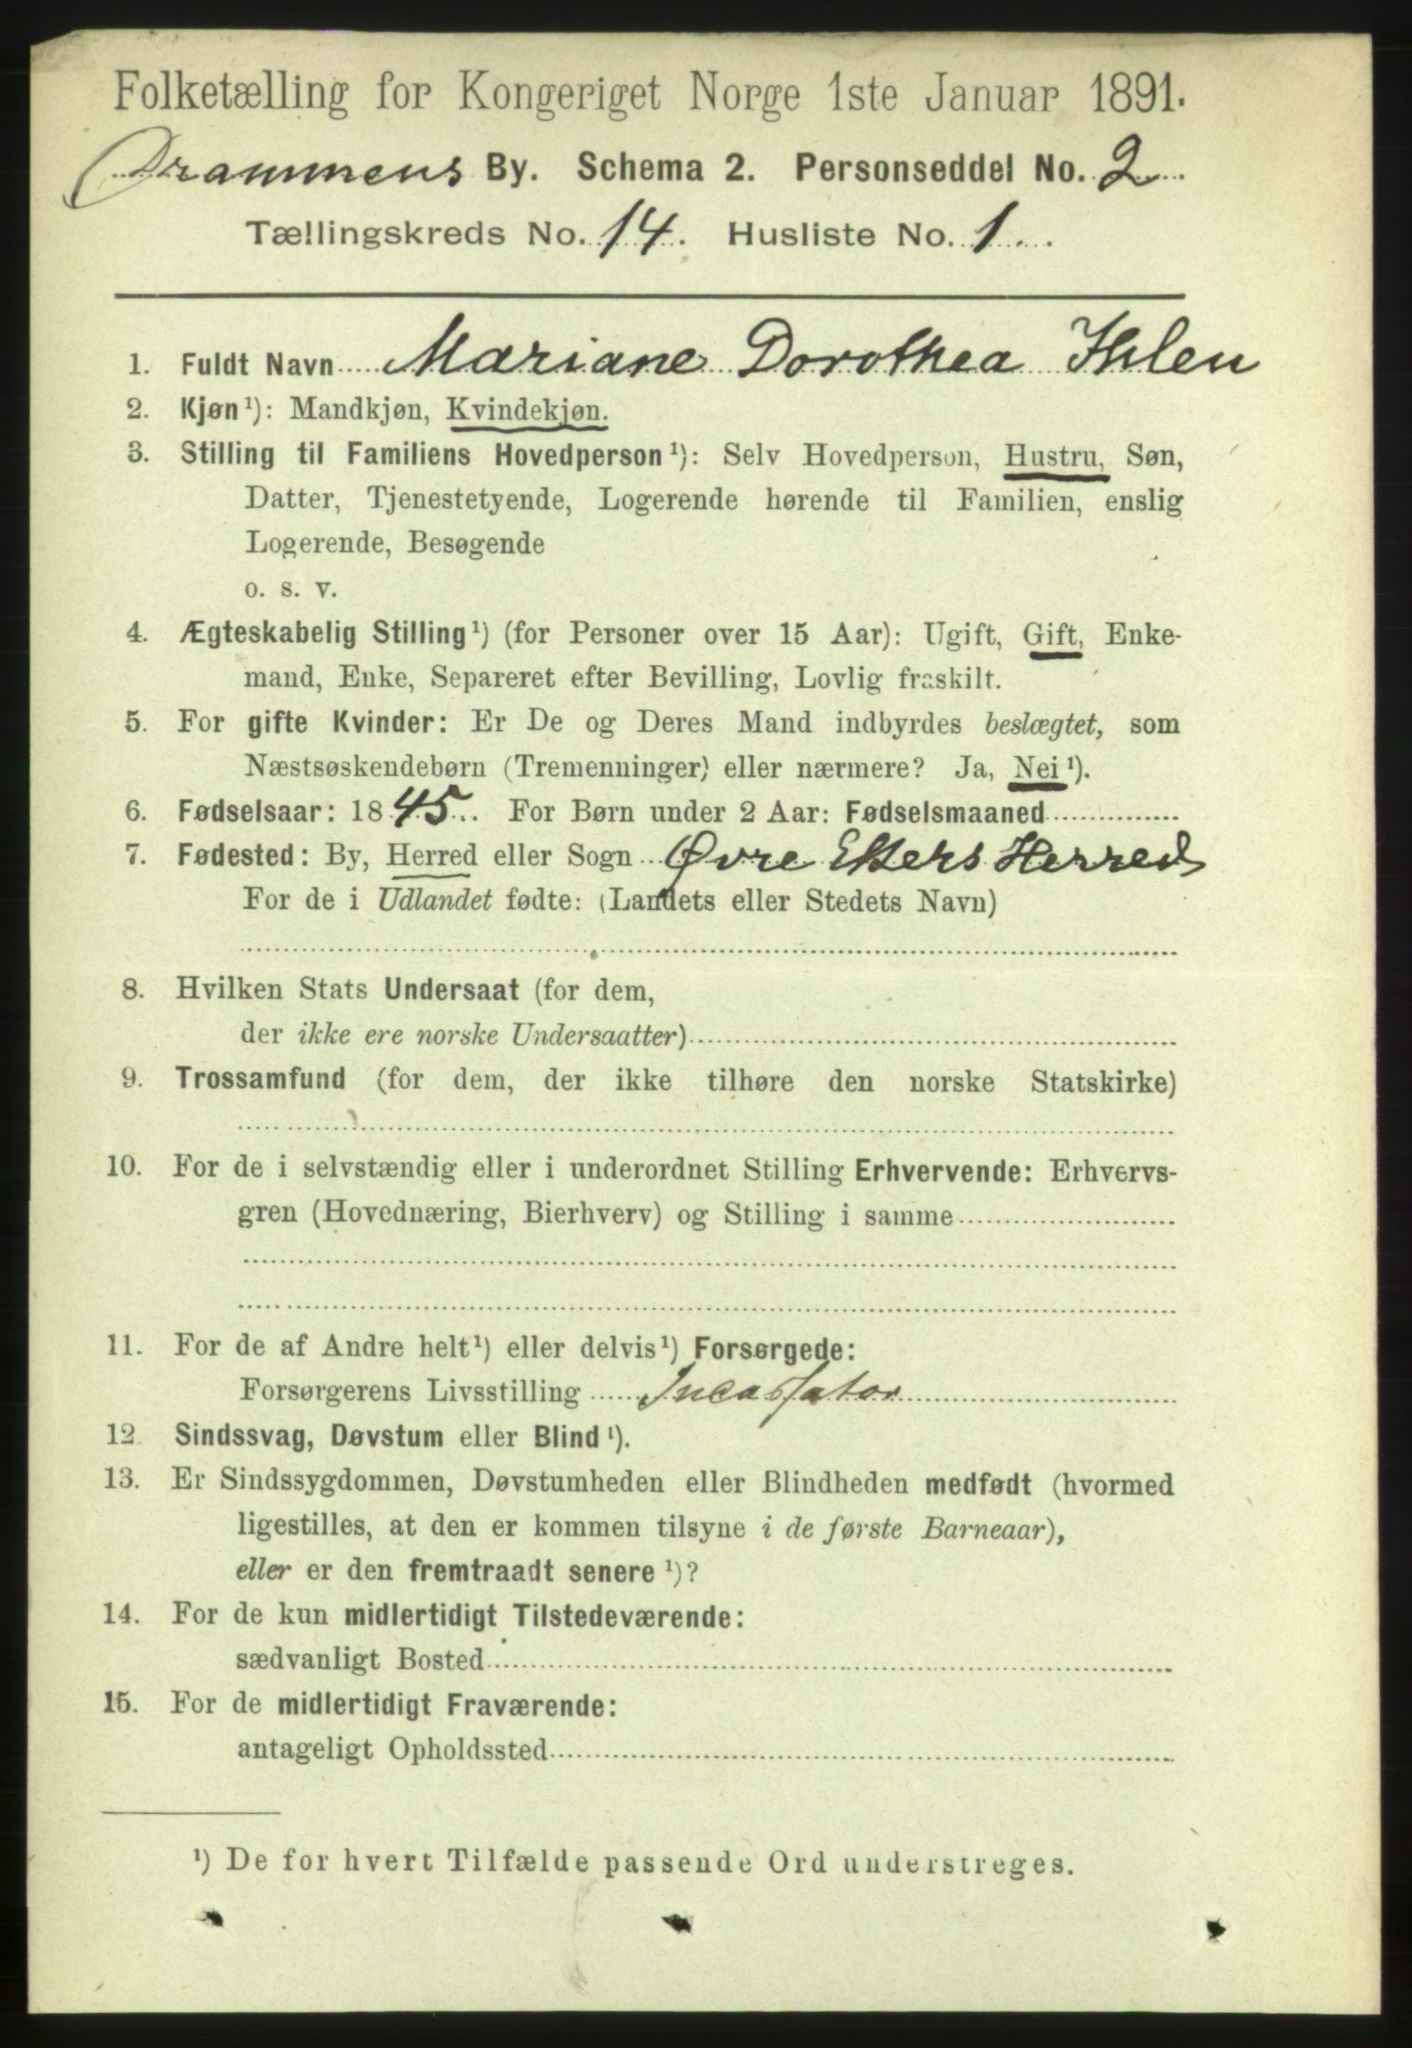 Folketælling for Kongeriget Norge 1ste Januar 1891.
Drammens By. Schema 2. Personseddel No. 2
Tællingskreds No. 14. Husliste No. 1.
1. Fuldt Navn Mariane Dorothea Ihlen
2. Kjøn¹): Mandkjøn, Kvindekjøn.
3. Stilling til Familiens Hovedperson¹): Selv Hovedperson, Hustru, Søn,
Datter, Tjenestetyende, Logerende hørende til Familien, enslig
Logerende, Besøgende
o. s. v.
4. Ægteskabelig Stilling¹) (for Personer over 15 Aar): Ugift, Gift, Enke-
mand, Enke, Separeret efter Bevilling, Lovlig fraskilt.
5. For gifte Kvinder: Er De og Deres Mand indbyrdes beslægtet, som
Næstsøskendebørn (Tremenninger) eller nærmere? Ja, Nei¹).
6. Fødselsaar: 1845. For Børn under 2 Aar: Fødselsmaaned
7. Fødested: By, Herred eller Sogn Øvre Ekers Herred
For de i Udlandet fødte: (Landets eller Stedets Navn)
8. Hvilken Stats Undersaat (for dem,
der ikke ere norske Undersaatter)
9. Trossamfund (for dem, der ikke tilhøre den norske Statskirke)
10. For de i selvstændig eller i underordnet Stilling Erhvervende: Erhvervs-
gren (Hovednæring, Bierhverv) og Stilling i samme
11. For de af Andre helt¹) eller delvis¹) Forsørgede:
Forsørgerens Livsstilling Incassator
12 Sindssvag, Døvstum eller Blind¹).
13. Er Sindssygdommen, Døvstumheden eller Blindheden medfødt (hvormed
ligestilles, at den er kommen tilsyne i de første Barneaar),
eller er den fremtraadt senere¹)?
14. For de kun midlertidigt Tilstedeværende:
sædvanligt Bosted
15. For de midlertidigt Fraværende:
antageligt Opholdssted
¹) De for hvert Tilfælde passende Ord understreges.